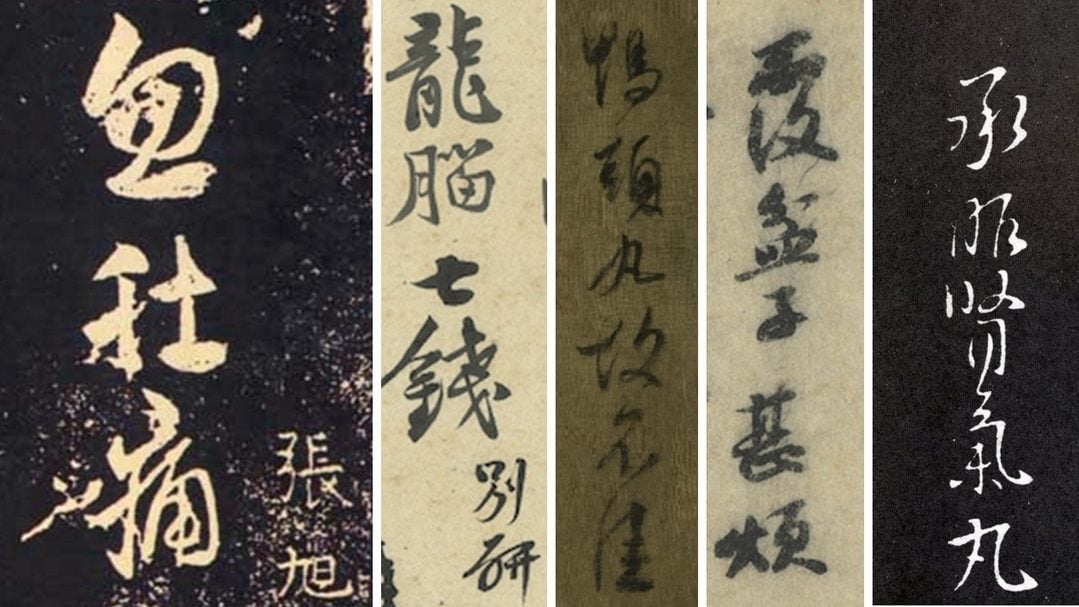 忽肚痛
張旭
龍腦七錢
別研
鴨頭丸故不佳
覆盆子甚煩
承服腎氣丸